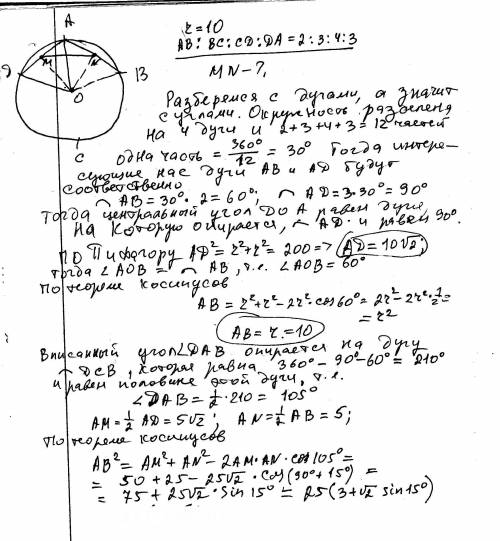 A
r = 10
AB : BC : CD : DA = 2 : 3 : 4 : 3
M N
MN - ?
B
O
C
Разберемся с дугами, а значит
с углами. Окружность разделена
на 4 дуги и 2+3+4+3 = 12 частей
одна часть = 360°/12 = 30° Тогда интере-
сующие нас дуги AB и AD будут
соответственно
◠ AB = 30°·2 = 60°; ◠ AD = 3·30° = 90°
Тогда центральный угол DOA равен дуге,
на которую опирается, ◠ AD и равен 90°.
По Пифагору AD² = r² + r² = 200 => AD = 10√2;
тогда ∠AOB = ◠ AB, т.е. ∠AOB = 60°
По теореме косинусов
AB = r² + r² - 2r²·cos 60° = 2r² - 2r²·1/2 =
= r²
AB = r = 10
Вписанный угол ∠DAB опирается на дугу
◠ DCB, которая равна 360° - 90° - 60° = 210°
и равен половине этой дуги, т.е.
∠DAB = 1/2·210 = 105°
AM = 1/2 AD = 5√2; AN = 1/2 AB = 5;
По теореме косинусов
AB² = AM² + AN² - 2AM·AN·cos 105° =
= 50 + 25 - 25√2·cos(90° + 15°) =
= 75 + 25√2·sin 15° = 25(3 + √2 sin 15°)